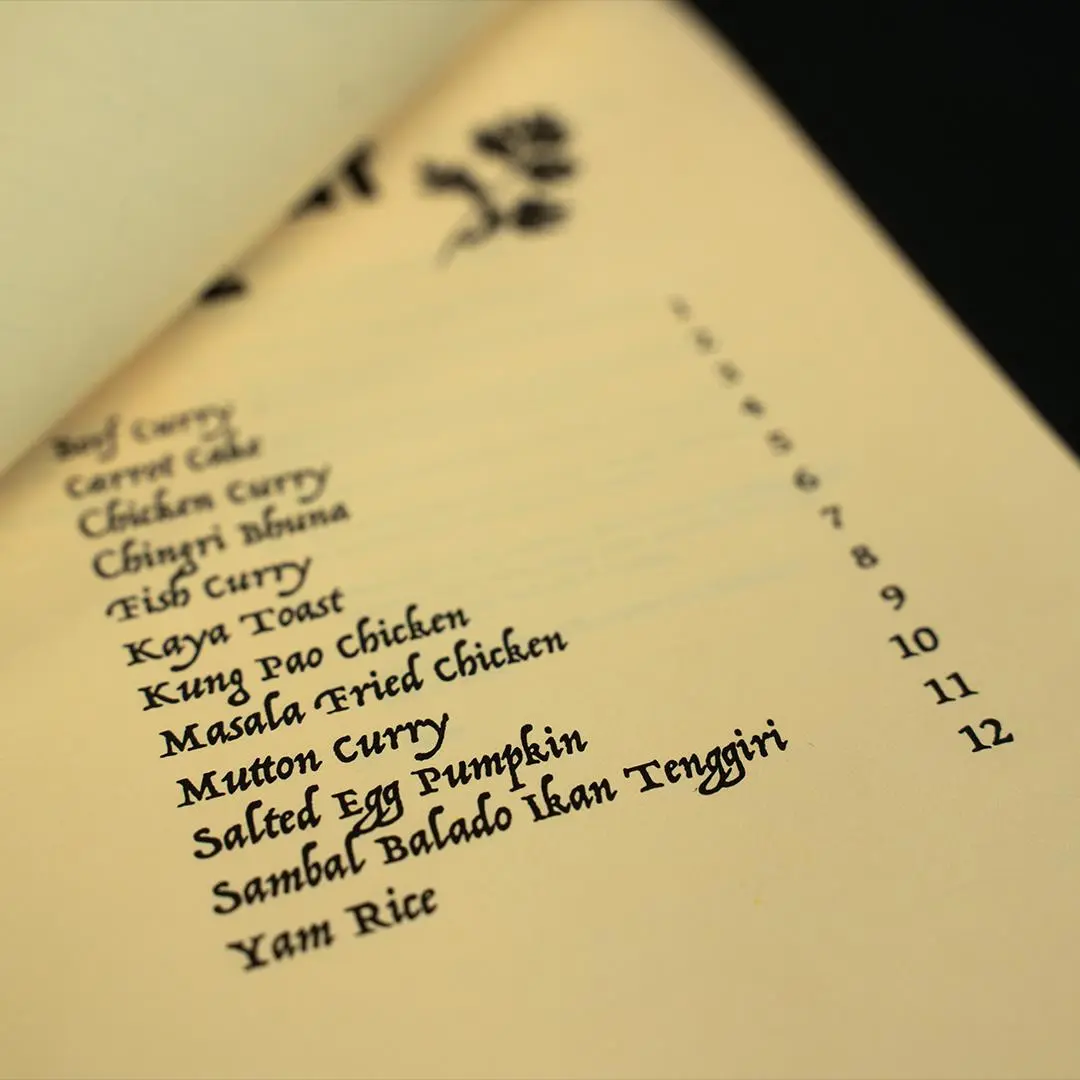 Beef Curry 1
Carrot Cake 2
Chicken Curry 3
Chingri Bhuna 4
Fish Curry 5
Kaya Toast 6
Kung Pao Chicken 7
Masala Fried Chicken 8
Mutton Curry 9
Salted Egg Pumpkin 10
Sambal Balado Ikan Tenggiri 11
Yam Rice 12